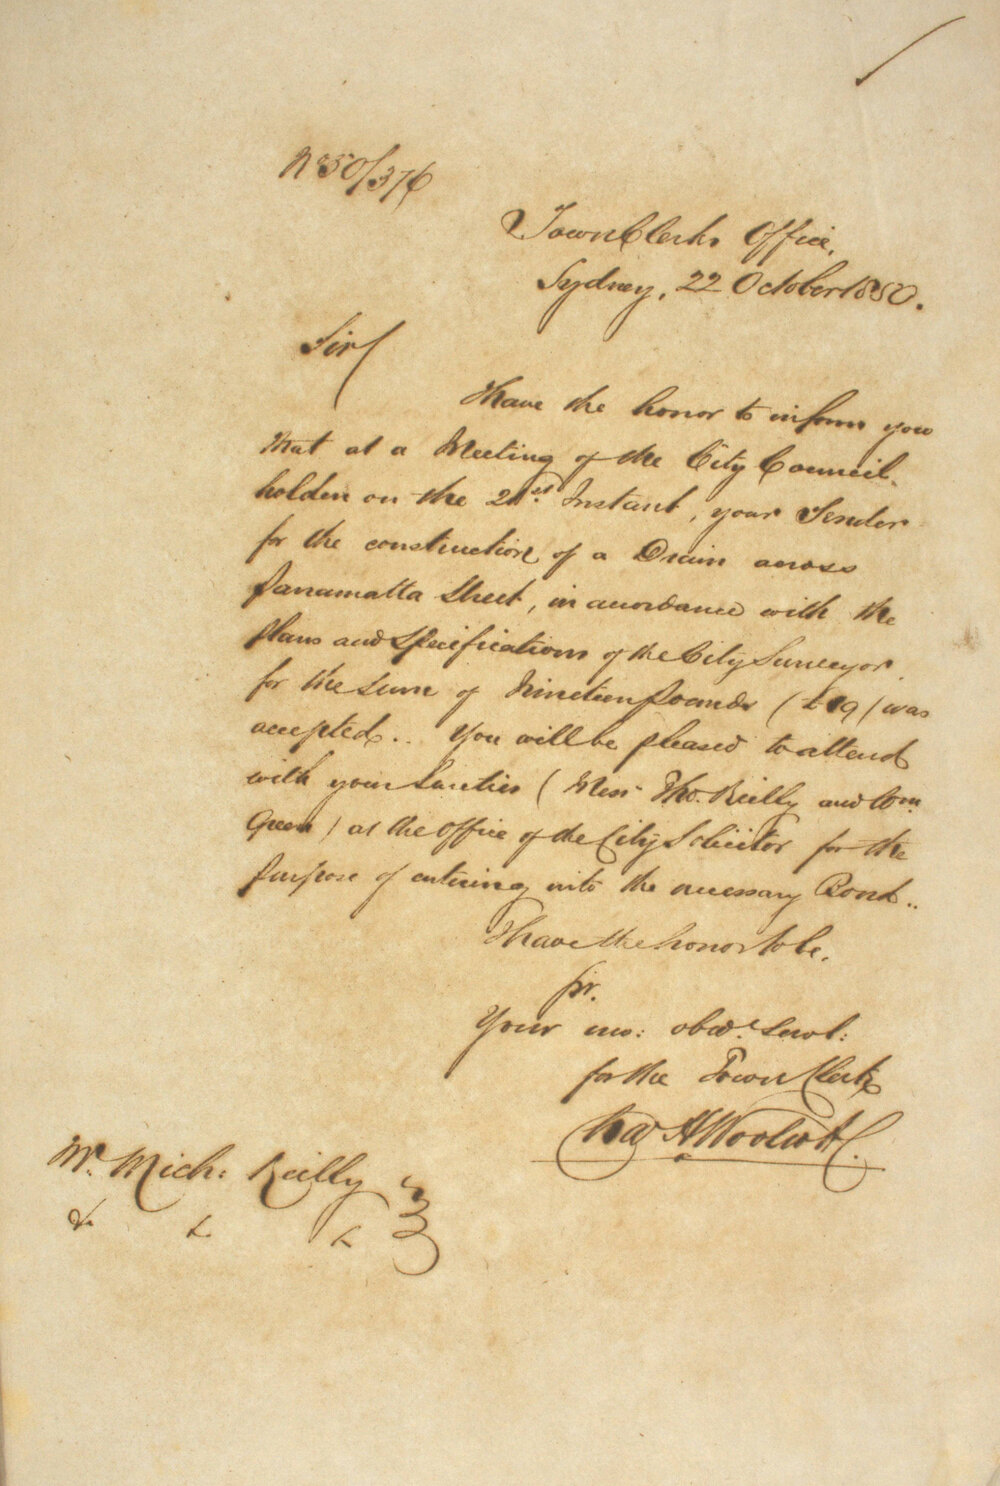 No 50/376
Town Clerks Office,
Sydney, 22 October 1850.
Sir
I have the honor to inform you
that at a Meeting of the City Council
holden on the 21st Instant, your Tender
for the construction of a Drain across
Parramatta Street, in accordance with the
plans and Specifications of the City Surveyor,
for the Sum of Nineteen pounds (£19) was
accepted. You will be pleased to attend
with your Sureties (Messrs Thos. Reilly and Wm.
Green) at the Office of the City Solicitor for the
purpose of entering into the necessary Bond.
I have the honor to be,
Sir,
Your mo: obedt. Servt:
for the Town Clerk
Chas H Woolcott
Mr. Mich: Reilly
& & &